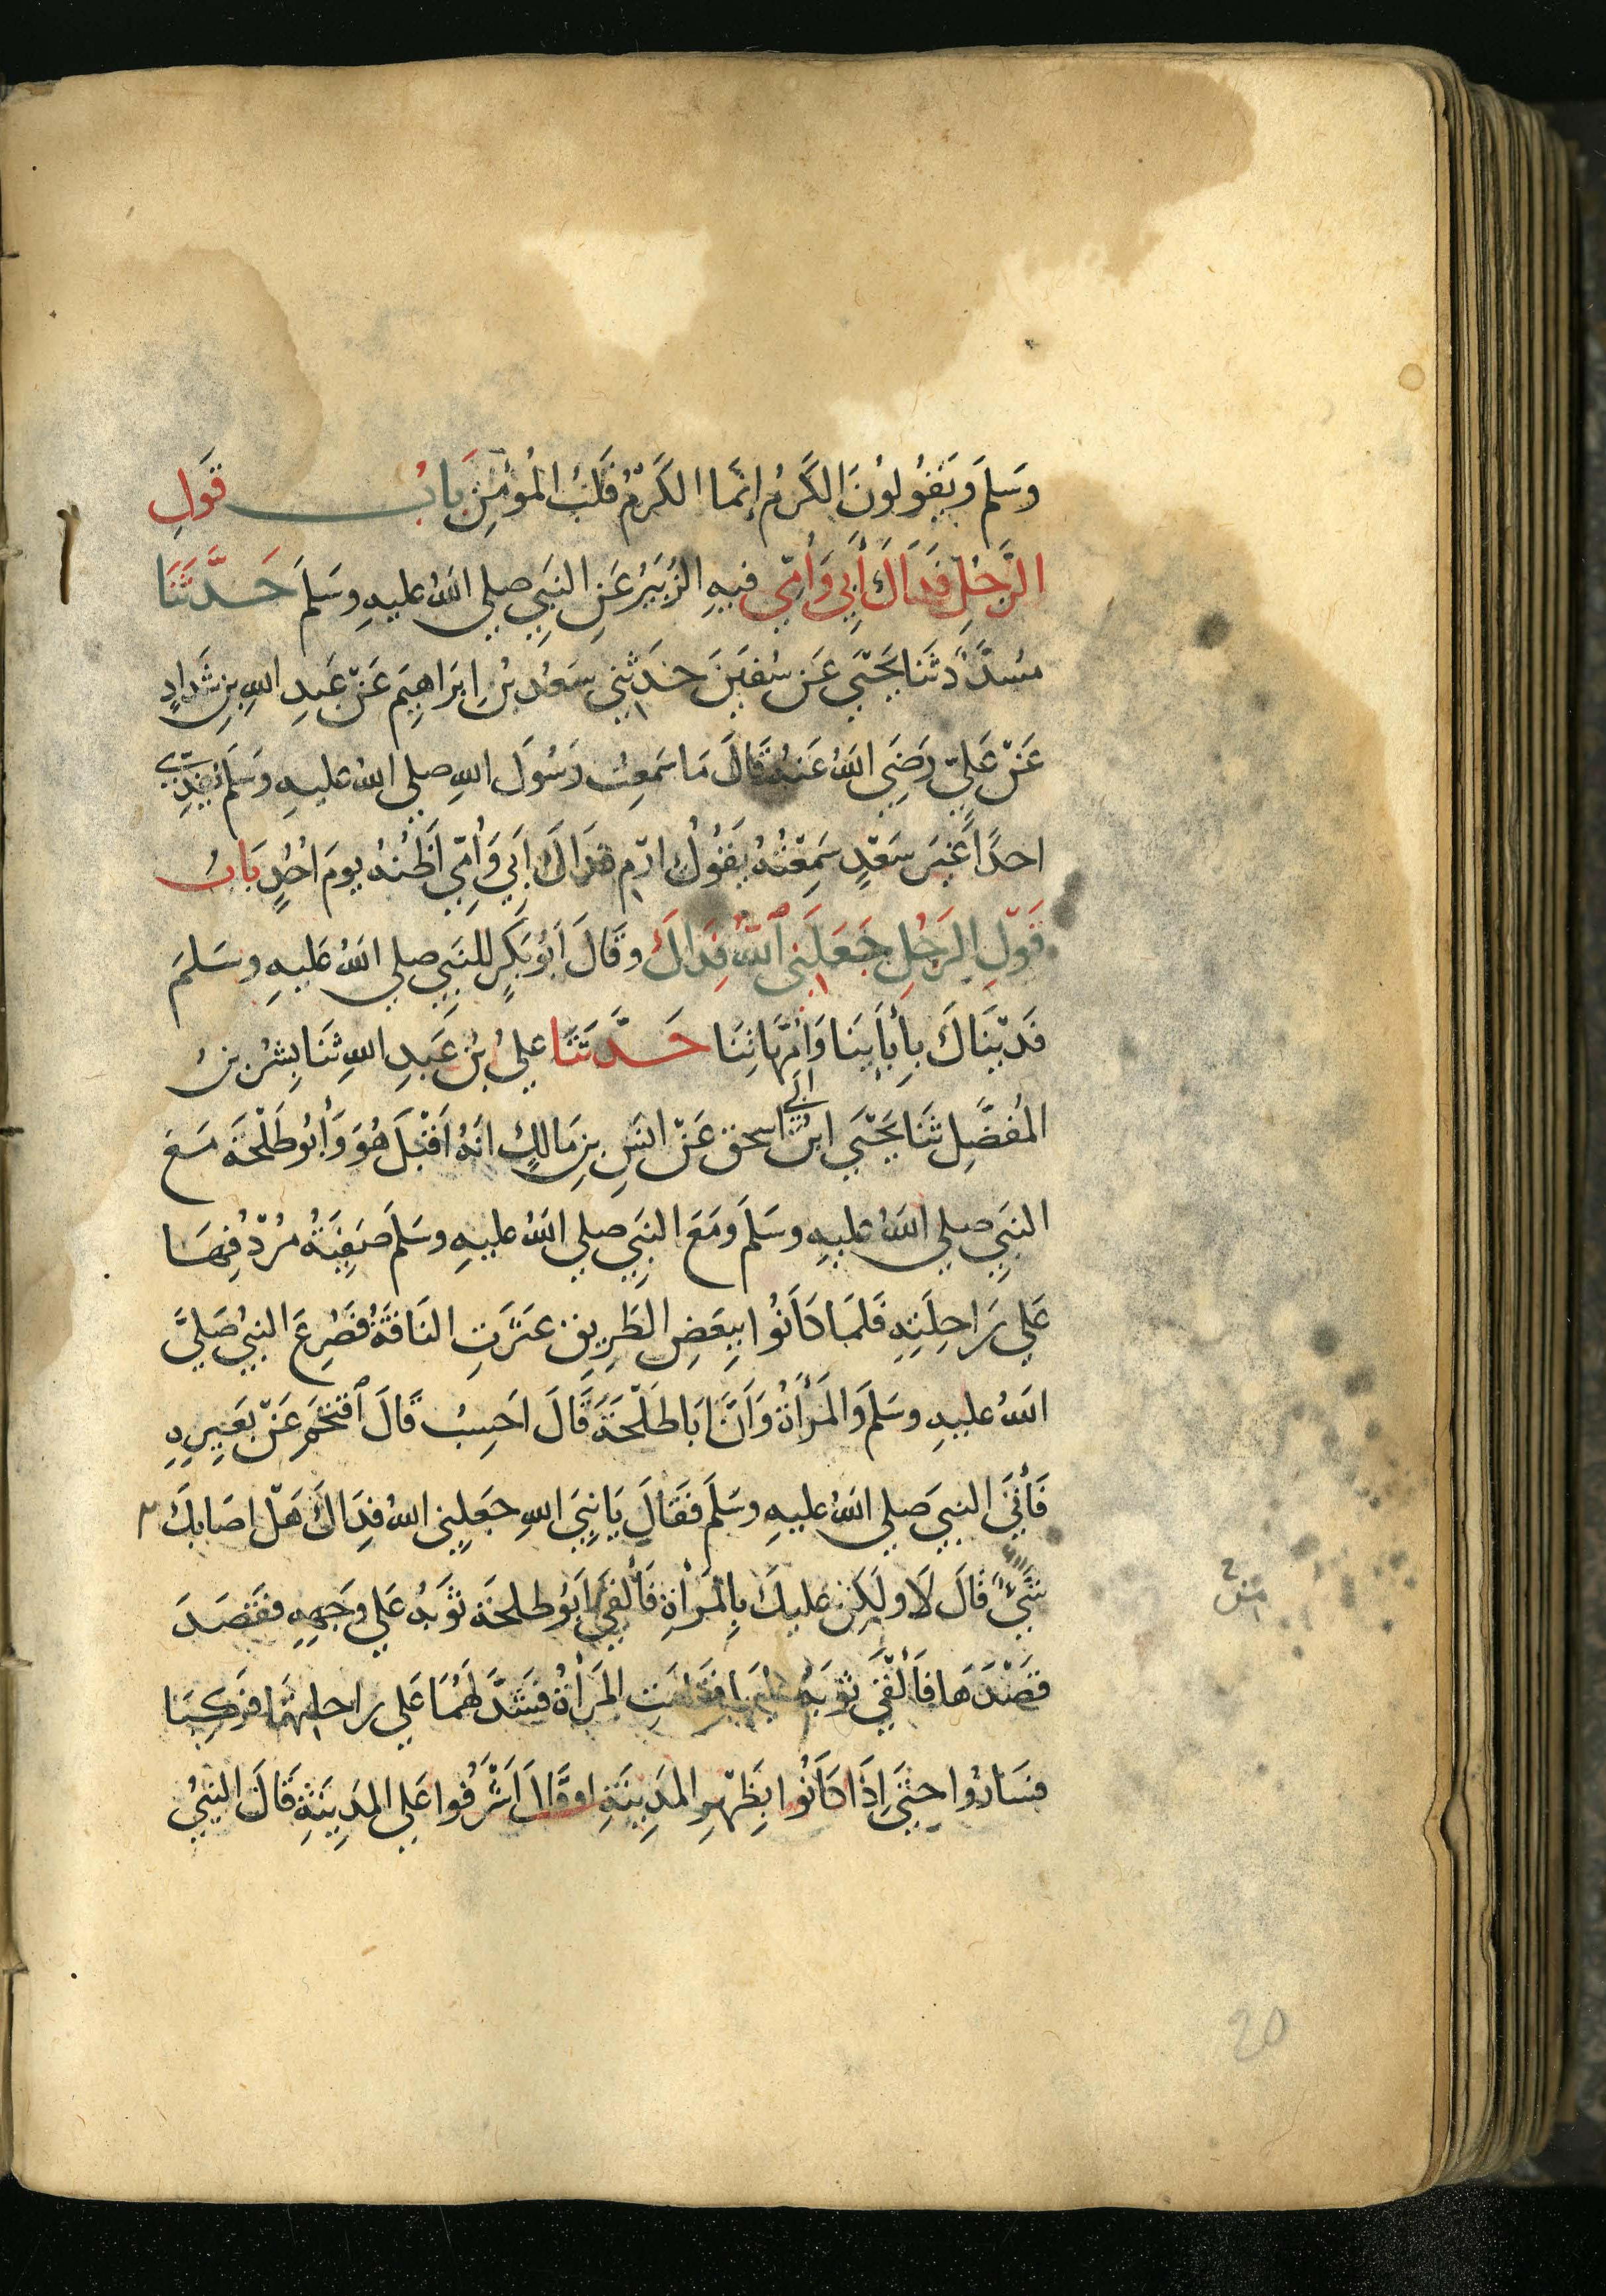 وَسَلَمَ وَيَقُولُونَ الكَرْمُ إنَّمَا الكَرْمُ قَلبُ المُؤْمِنِ بَابُ قَولِ
الرَّجُلِ فَدَاكَ أَبِي وَأُمِّي فيهِ الزُبَيْرُ عَنِ النَبِيِ صلي اللهُ عليهِ وسَلمَ حَدَّثَنَا
مُسَدَّدٌ ثَنَا يَحْيَي عَن سُفيَنَ حَدَثَنِي سَعْدُ بْنُ اِبرَاهِيمَ عَنْ عَبدِ اللهِ بنِ شَدادٍ
عَنْ عَلِيٍّ رَضِيَ اللهُ عَنهُ قَالَ مَا سَمِعتُ رَسُولَ اللهِ صلي اللهُ عليهِ وَسَلَم يُفَدِّي
احدًا غَيرَ سَعْدٍ سَمِعْتُهُ يَقُولُ ارْمِ فَدَاكَ اَبِي وَأُمِّي اَظُنهُ يومَ اُحُدٍ بَابُ
قَوْلِ الرَجُلِ جَعَلَنِي ٱللهُ فِدَاكَ وقَالَ اَبُو بَكَرٍ للنَبِيِ صلي اللهُ عَليهِ وسَلمَ
فَدَيْنَاكَ بِأَبَايِنَا وَأُمَّهَاتِنَا حَدَّثَنَا عليُ بْنُ عَبدِ اللهِ ثَنَا بِشْرُ بنُ
المُفَضَّلِ ثَنَا يَحْيَي ابنُ ابي اسحق عَنْ انَسِ بنِ مَالكٍ انَهُ اَقْبَلَ هُوَ وَأَبُو طَلْحَةَ مَعَ
النَبِيِ صلي اللهُ عليهِ وسَلَم وَمَعَ النَبِيِ صلي اللهُ عليهِ وسَلَمَ صَفِيَةُ مُرْدِفُهَا
عَلي رَاحِلَتِهِ فَلمَا كَانُوا بِبَعضِ الطَرِيقِ عَثَرَتِ النَاقَةُ فَصُرِعَ النبيُ صَليَّ
اللهُ عليهِ وسَلَمَ وَالمَرْأَةُ وَانَّ اَبَا طَلْحَةَ قَالَ احَسِبُ قَالَ ٱقتَحَم عَنْ بَعِيرِهِ
فَأَتَي النبيَ صَلي اللهُ عليهِ وسَلَم فَقَالَ يَا نَبِيَ اللهِ جَعَلنِي اللهُ فِدَاكَ هَلْ اصَابكَ
شَيءٌ قَالَ لَا ولَكِن عليكَ بِالمَرْأَةِ فَأَلقي اَبُو طلحَة ثَوبَهُ عَلي وَجهِهِ فَقَصَدَ
قَصْدَهَا فَأَلْقَي ثَوبَهُ عَليهَا فقَامَتِ المَرْأَةُ فَشَدَّ لَهُمَا عَلي راحِلتِهِمَا فرَكِبَا
فسَارُوا حِتَي اِذَا كَانُوا بِظَهْرِ المَدِينَةِ اوقَال اَشْرَفُوا عَلي المَدِينَةِ قَالَ النَبِيُ
20